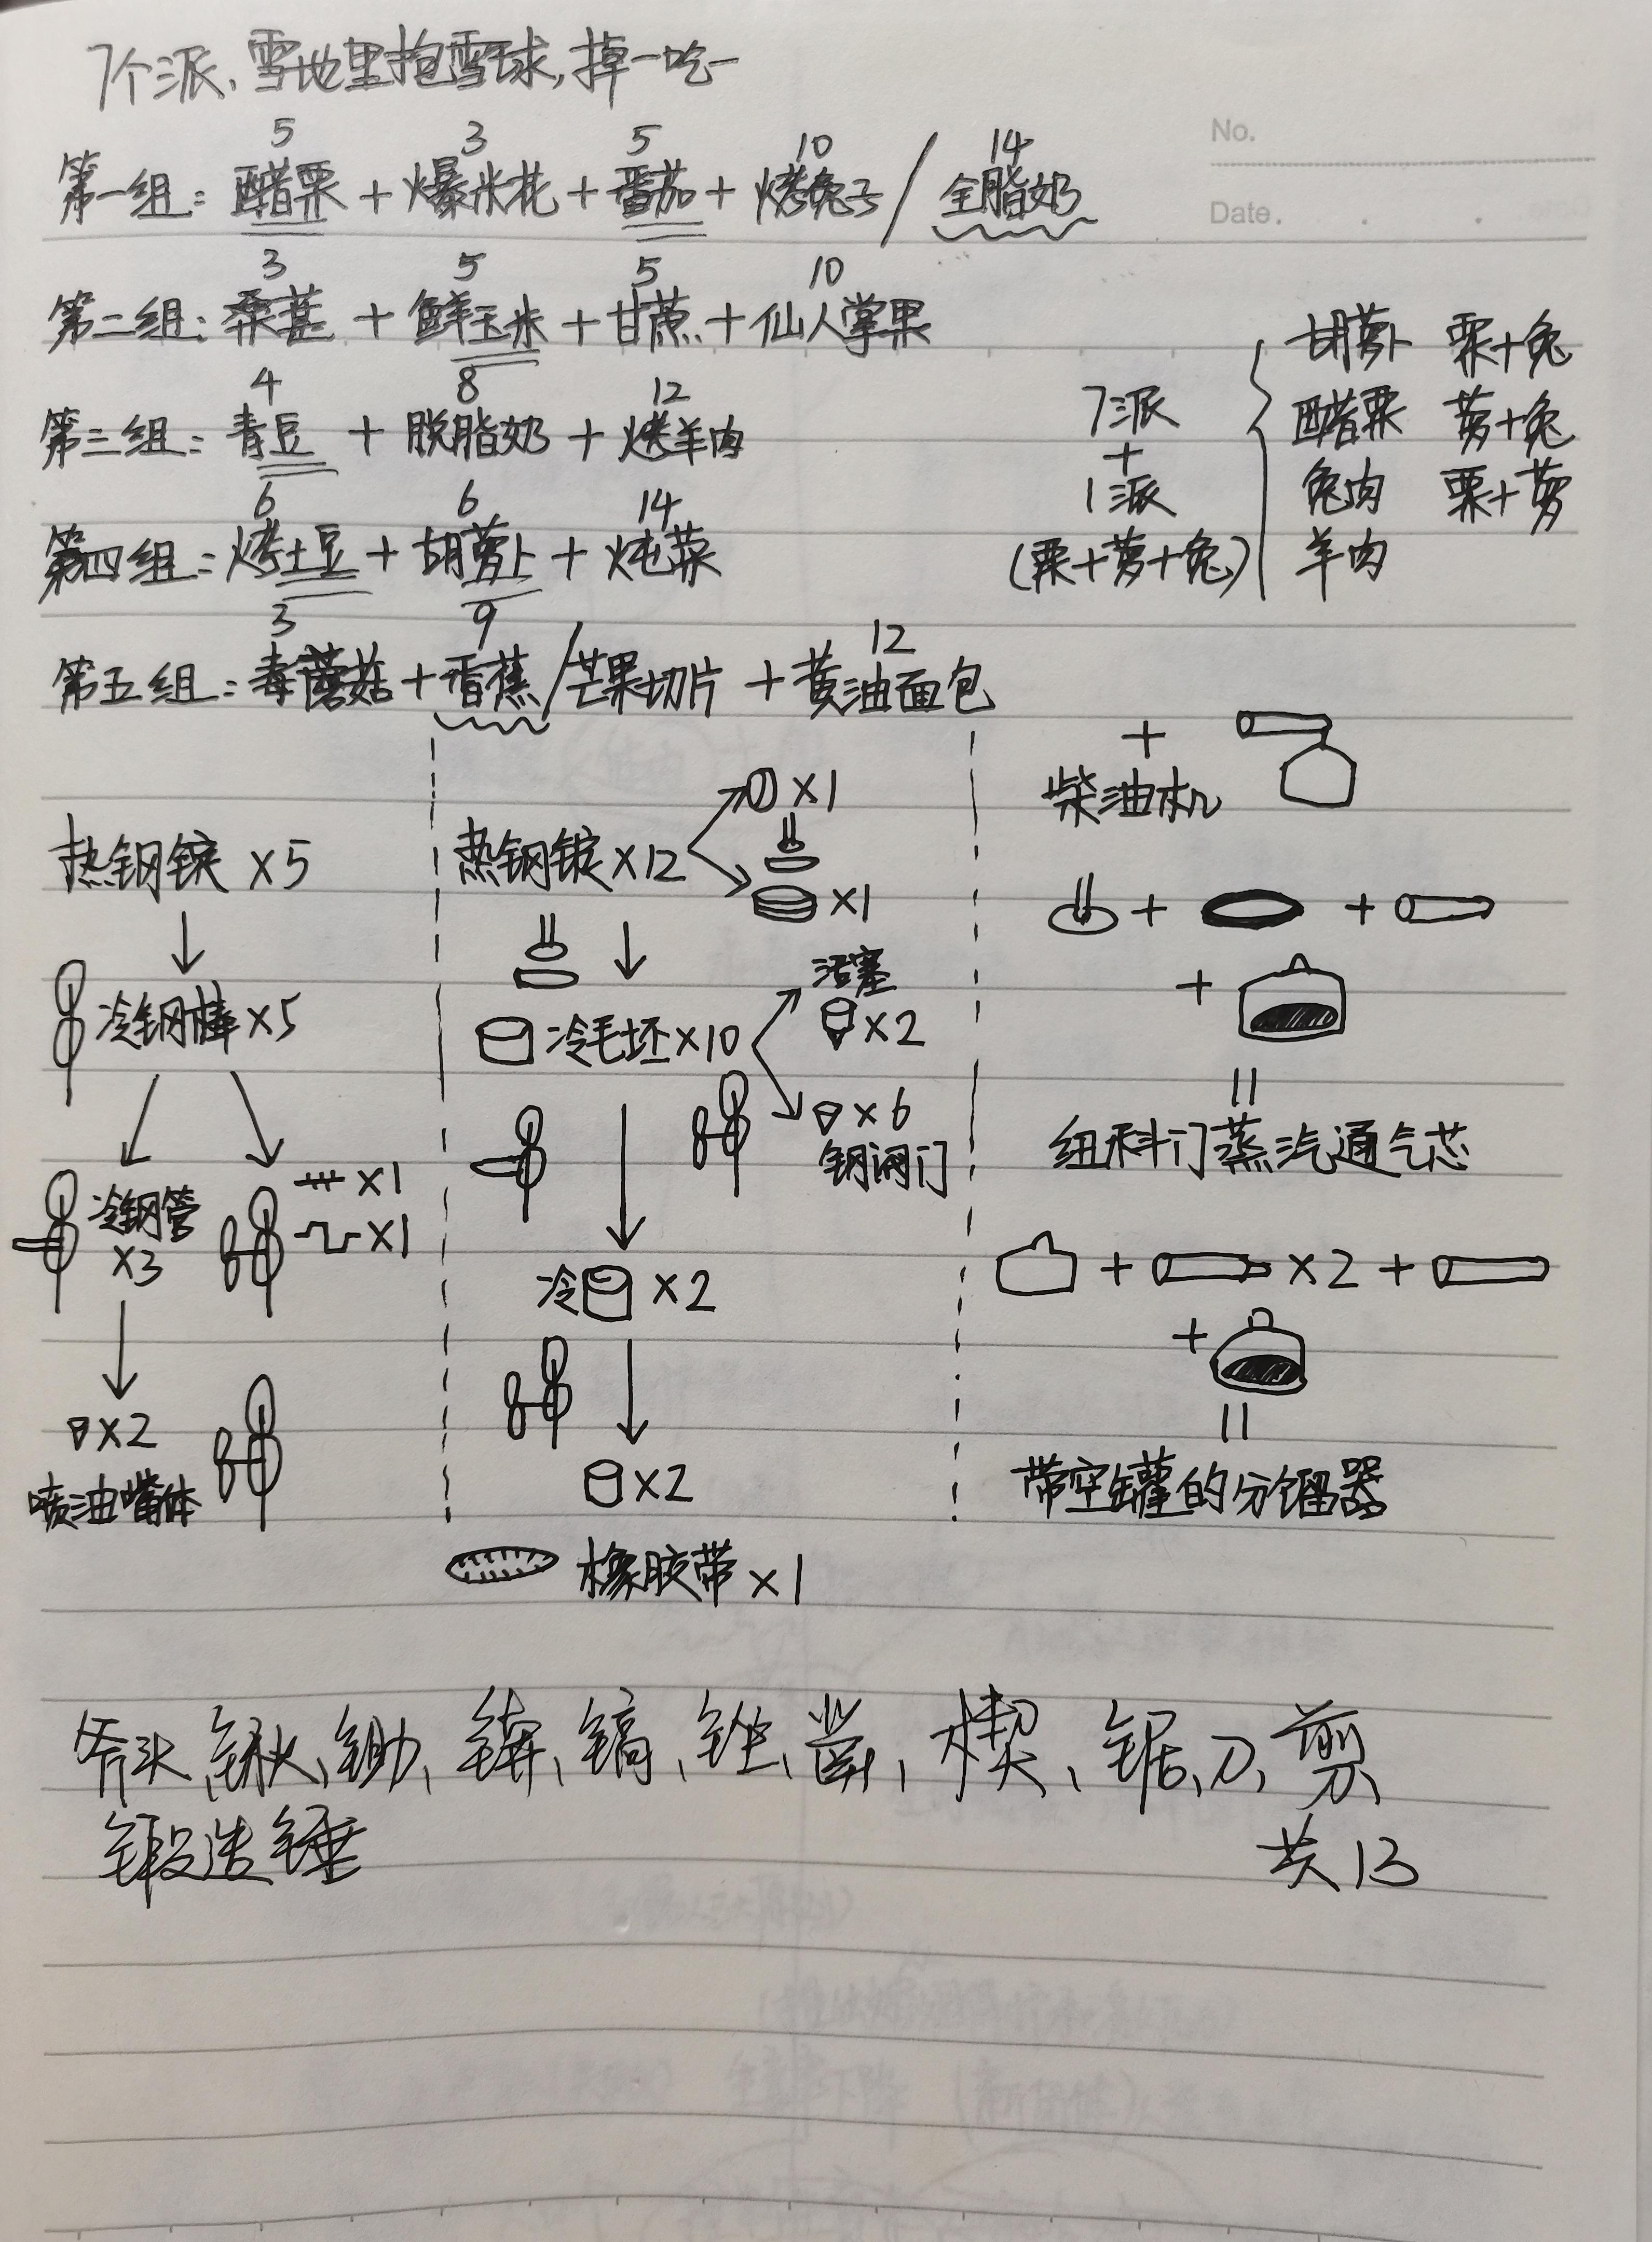 7个派、雪地里抱雪球,掉一吃一
No.
Date.
5 3 5 10 14
第一组:醋栗+爆米花+番茄+烤兔子/全脂奶
3 5 5 10
第二组:桑葚+鲜玉米+甘蔗+仙人掌果
4 8 12
第三组:青豆+脱脂奶+烤羊肉
6 6 14
第四组:烤土豆+胡萝卜+炖菜
3 9 12
第五组:毒蘑菇+香蕉/芒果切片+黄油面包
7派
+
1派
(栗+萝+兔)
胡萝卜 栗+兔
醋栗 萝+兔
兔肉 栗+萝
羊肉
热钢锭×5
冷钢棒×5
冷钢管
×3
×1
×1
×2
喷油嘴体
热钢锭×12
×1
×1
冷毛坯×10
活塞
×2
×6
钢阀门
冷 ×2
×2
橡胶带×1
+
柴油机
+ +
+
=
纽科门蒸汽通气芯
+ ×2 +
+
=
带空罐的分馏器
斧头、锹、锄、锛、镐、锉、凿、楔、锯、刀、剪、
锻造锤
共13